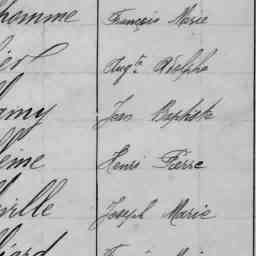 homme François Marie
Aug.te Adolphe
amy Jean Baptiste
Henri Pierre
ville Joseph Marie